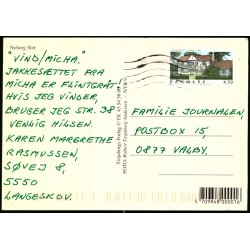 Nyborg Slot
"VIND/MICHA."
JAKKESÆTTET FRA
MICHA ER FLINTGRÅT
HVIS JEG VINDER,
BRUGER JEG STR. 38
VENLIG HILSEN.
KAREN MARGRETHE
RASMUSSEN,
SØVEJ 8,
5550
LANGESKOV.
DANMARK
4.50
FAMILIE JOURNALEN,
POSTBOX 15,
0877 VALBY.
5 709848 000016